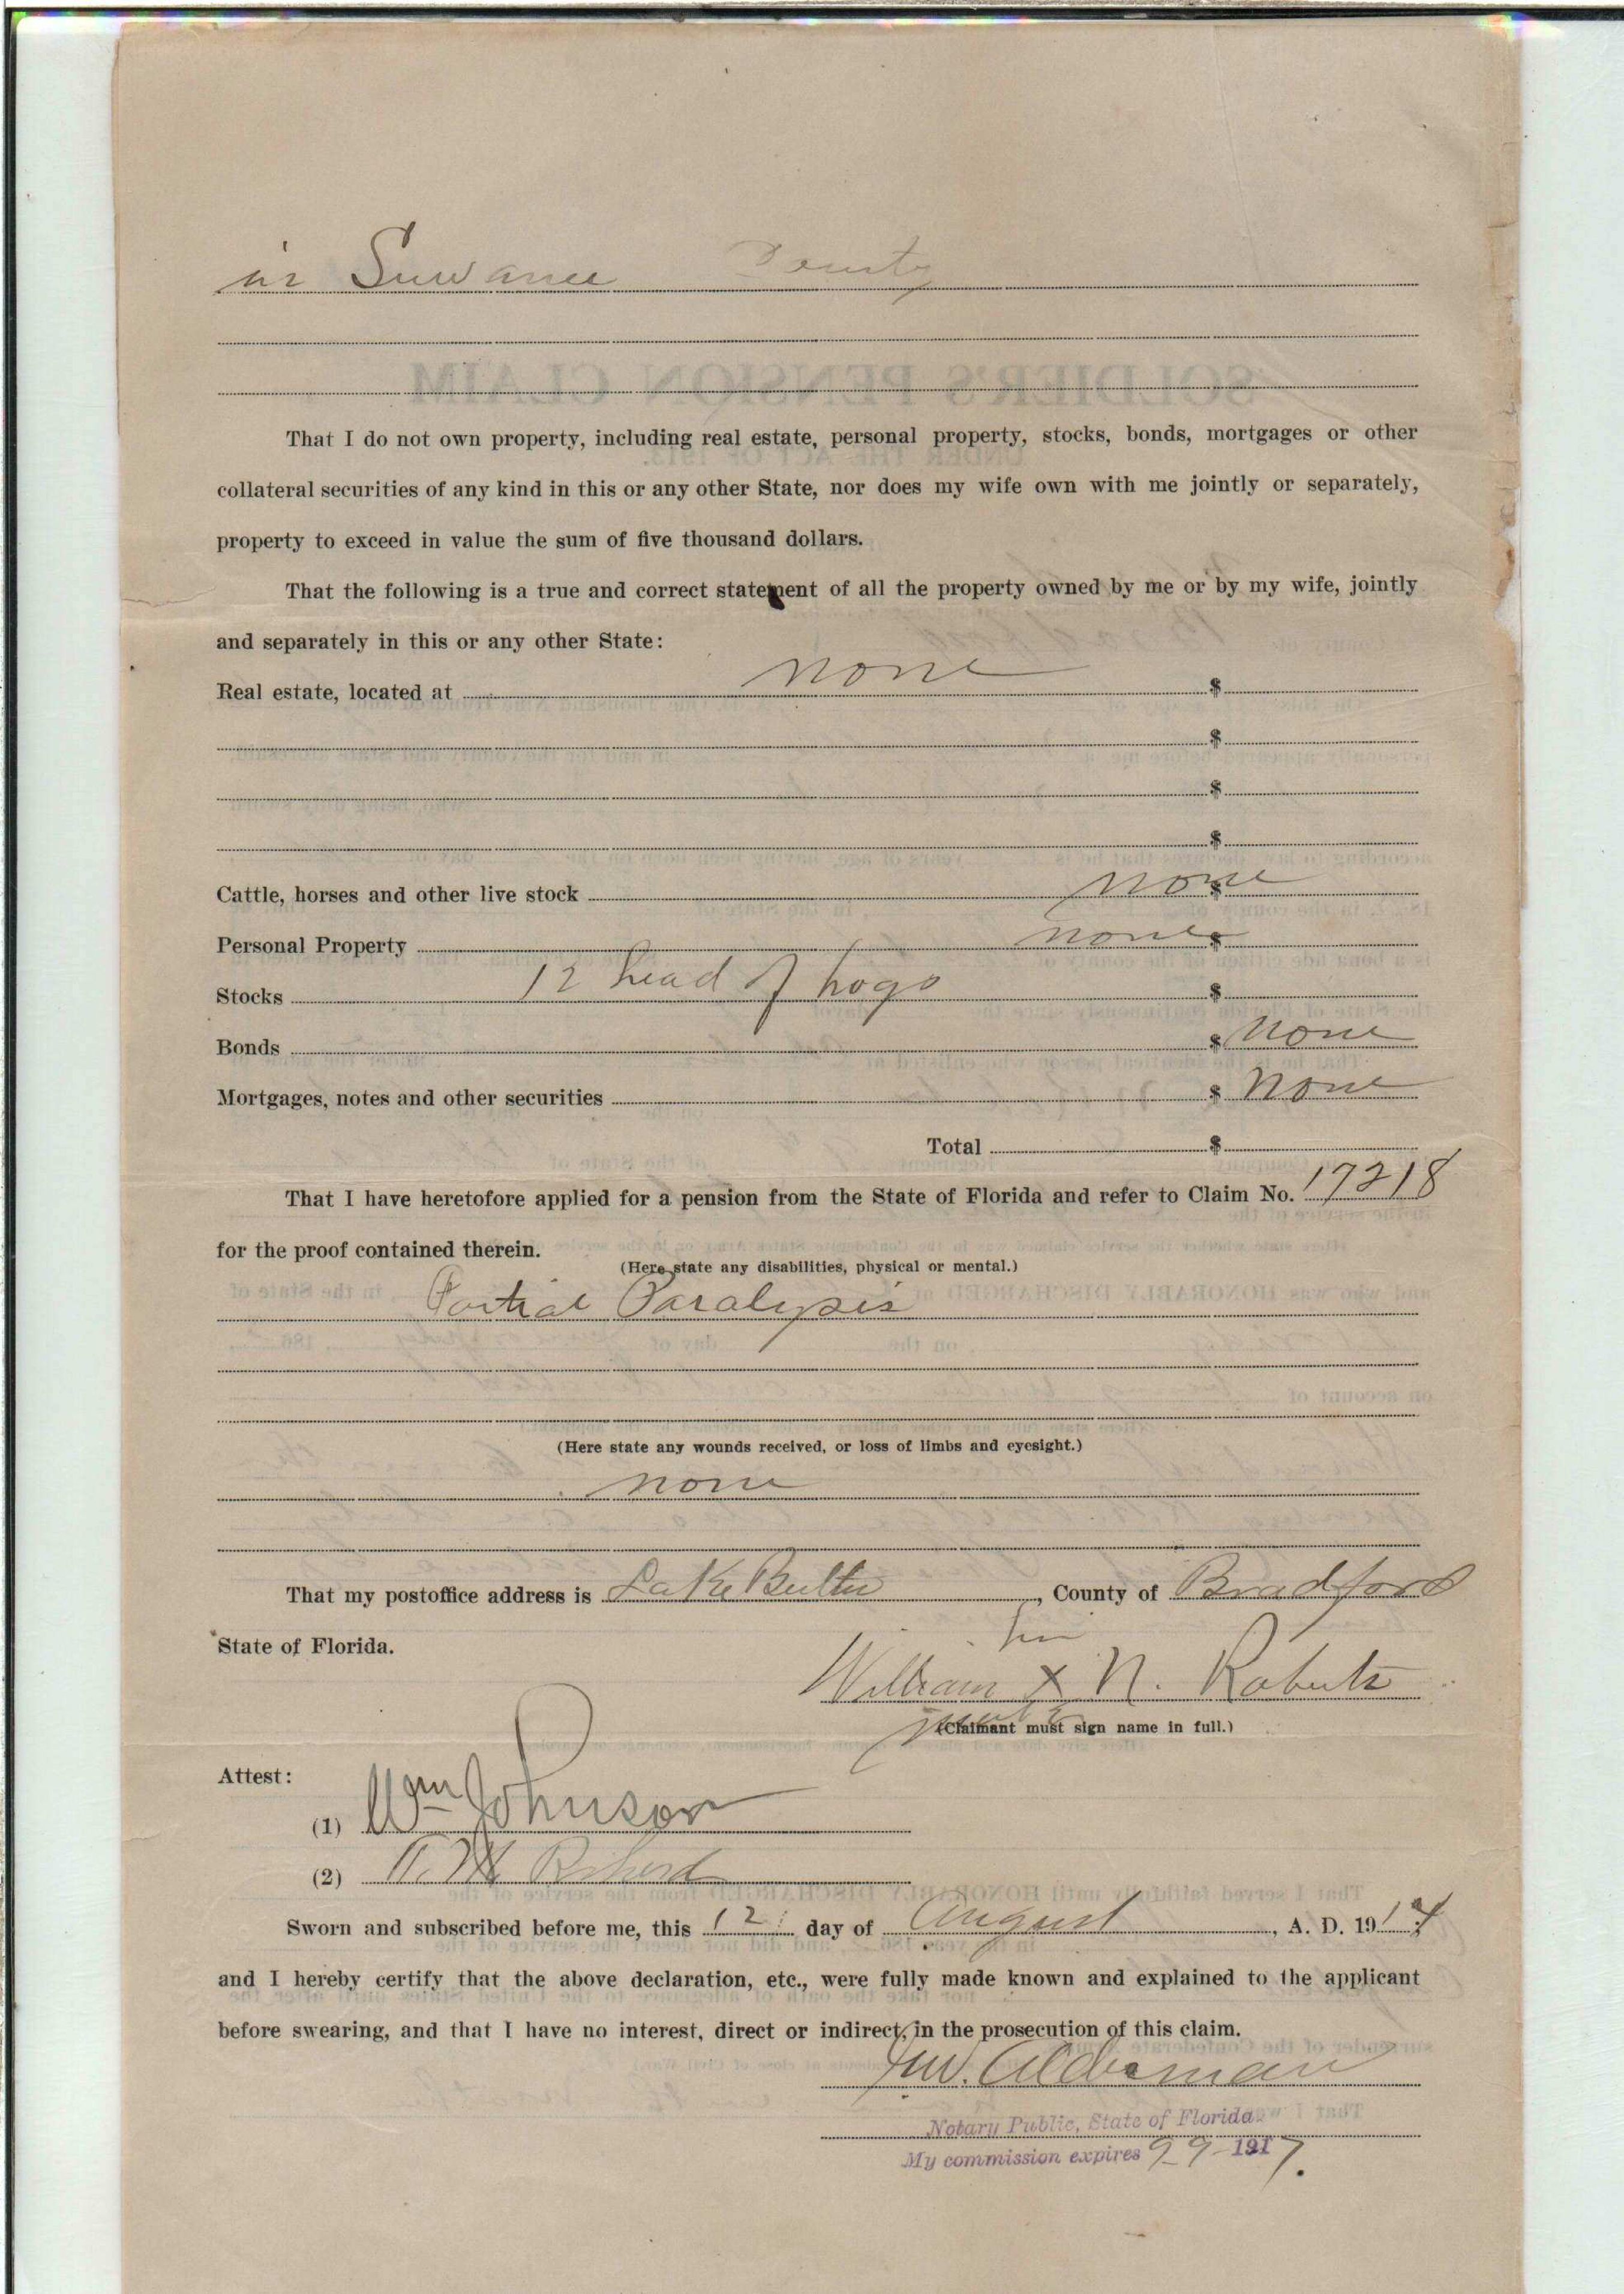 in Suwanee County
That I do not own property, including real estate, personal property, stocks, bonds, mortgages or other
collateral securities of any kind in this or any other State, nor does my wife own with me jointly or separately,
property to exceed in value the sum of five thousand dollars.
That the following is a true and correct statement of all the property owned by me or by my wife, jointly
and separately in this or any other State:
Real estate, located at none $
$
$
$
Cattle, horses and other live stock none $
Personal Property none $
Stocks 12 head of hogs $
Bonds $ none
Mortgages, notes and other securities $ none
Total $
That I have heretofore applied for a pension from the State of Florida and refer to Claim No. 17218
for the proof contained therein.
(Here state any disabilities, physical or mental.)
Partial Paralysis
(Here state any wounds received, or loss of limbs and eyesight.)
none
That my postoffice address is Lake Butler, County of Bradford
State of Florida.
his
William X N. Roberts
mark
(Claimant must sign name in full.)
Attest:
(1) Wm Johnson
(2)
Sworn and subscribed before me, this 12 day of August, A. D. 191
and I hereby certify that the above declaration, etc., were fully made known and explained to the applicant
before swearing, and that I have no interest, direct or indirect, in the prosecution of this claim.
Alderman
Notary Public, State of Florida
My commission expires 9-9-1917.